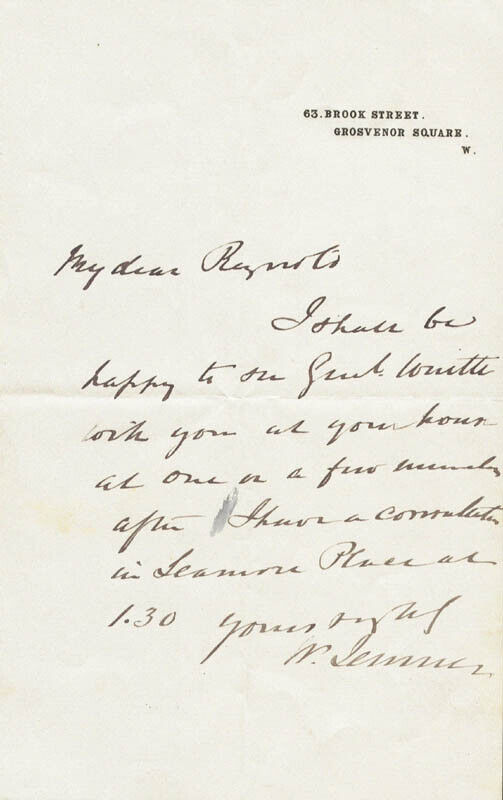 63. BROOK STREET.
GROSVENOR SQUARE.
W.
My dear Reynolds
I shall be
happy to see Genl.
with you at your house
at one or a few minutes
after I have a consultation
in Seamore Place at
1.30 yours
W. Jenner